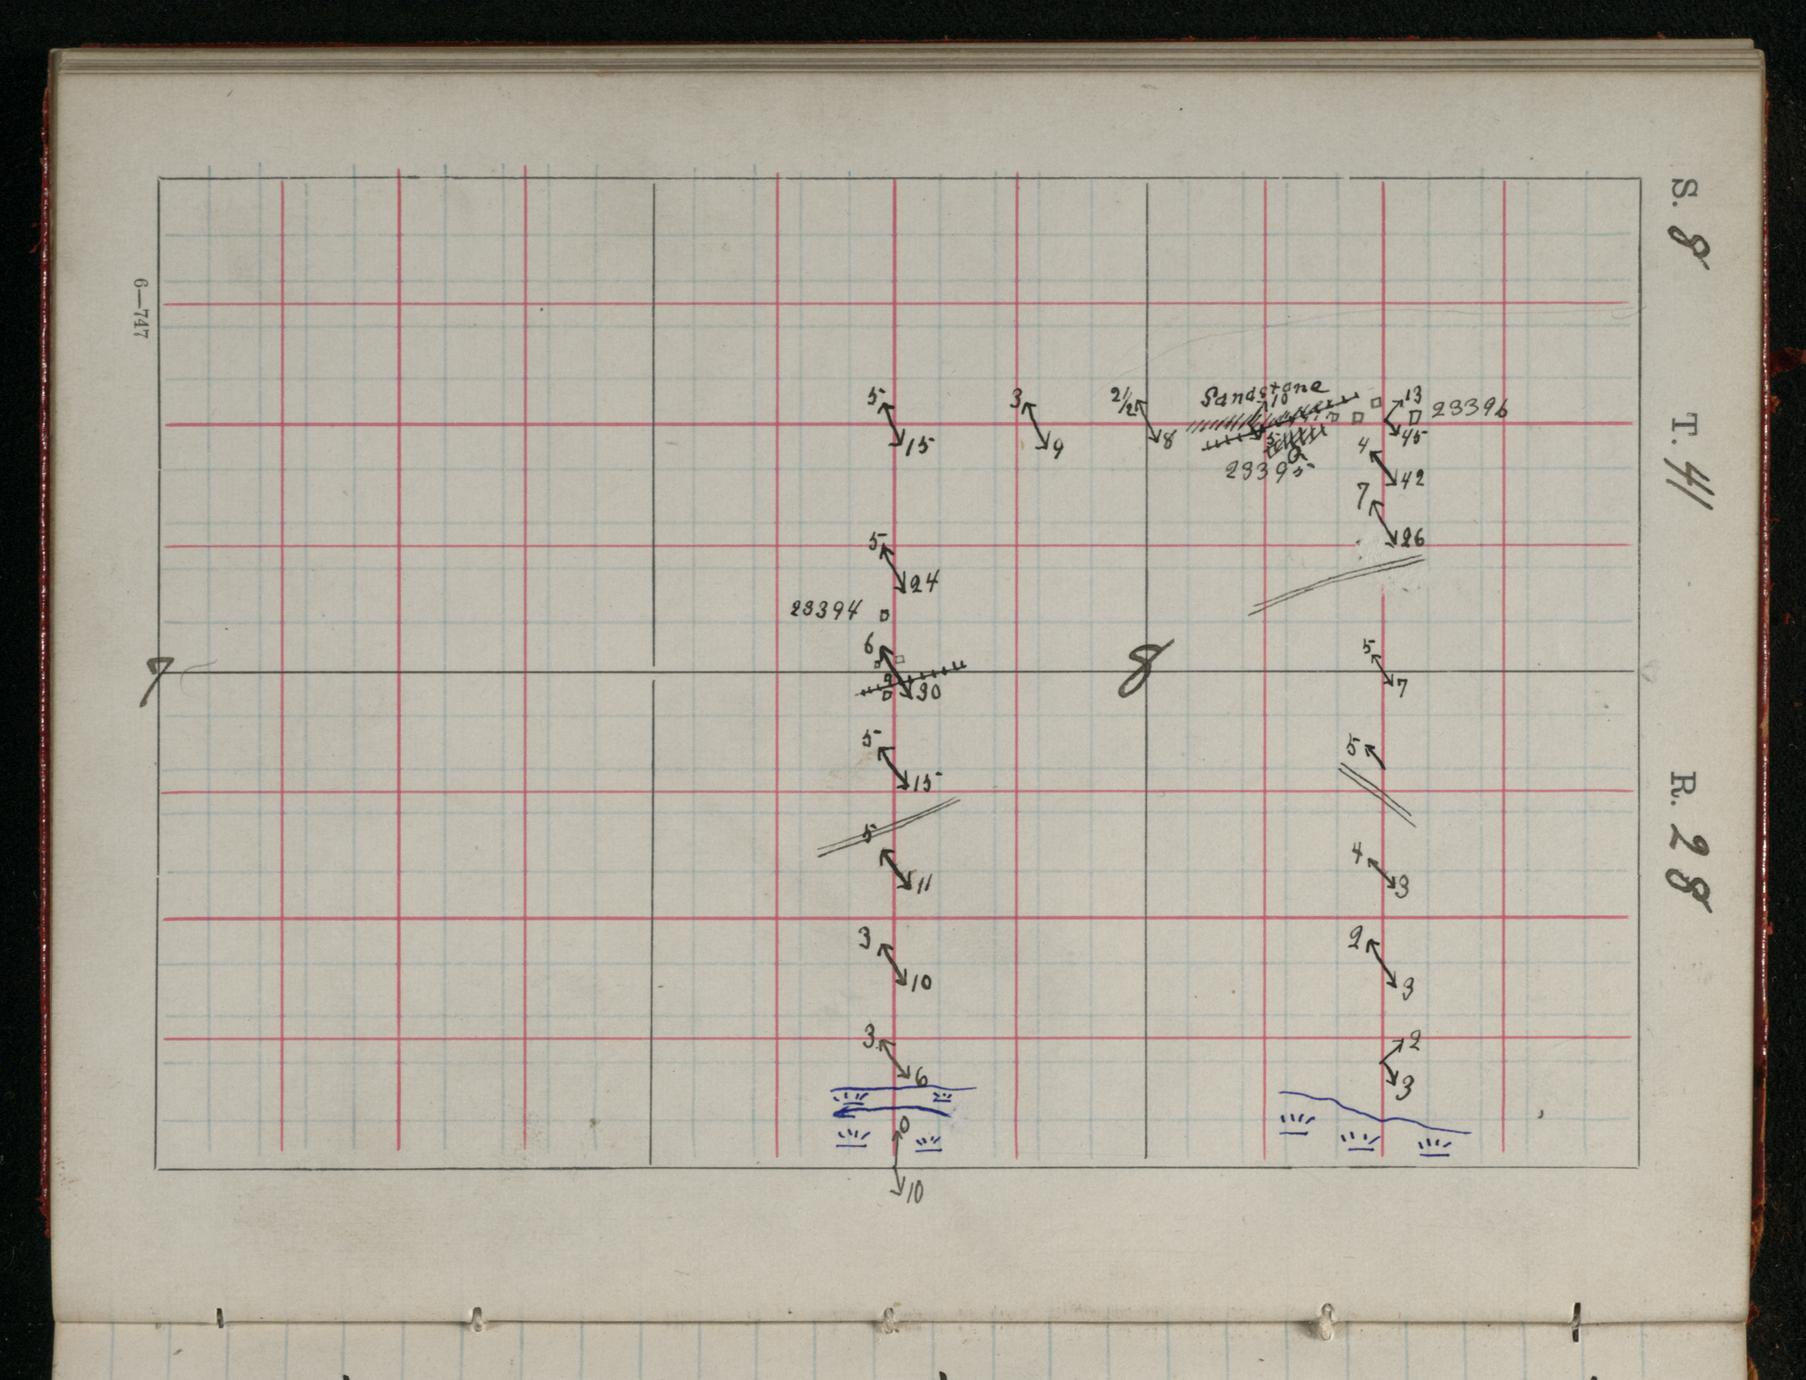 S. 8 T. 41 R. 28
6—747
5 15
3 9
2 1/2 8
Sandstone
10
5
23395
13
45
23396
4 42
7 26
5 24
23394
6 30
7
8
5 7
5 15
5
5 11
4 3
3 10
2 3
3 6
2 3
0
10